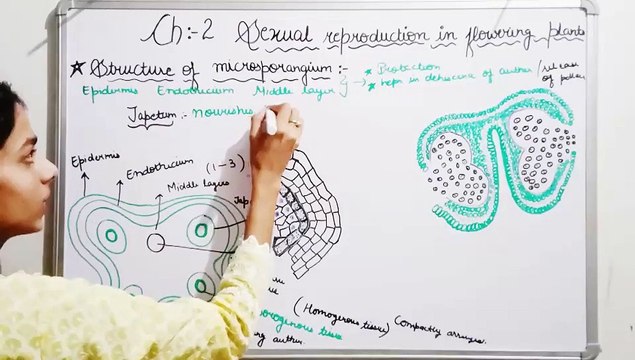 Ch:-2 Sexual reproduction in flowering plants
★ Structure of microsporangium :-
Epidermis Endothecium Middle layer } → * Protection
* help in dehiscence of anther / release of pollen
Tapetum :- nourishes
Epidermis
Endothecium (1-3)
Middle layers
Tap
(Homogenous tissue) Compactly arranged.
orogenous tissue
ng anther.